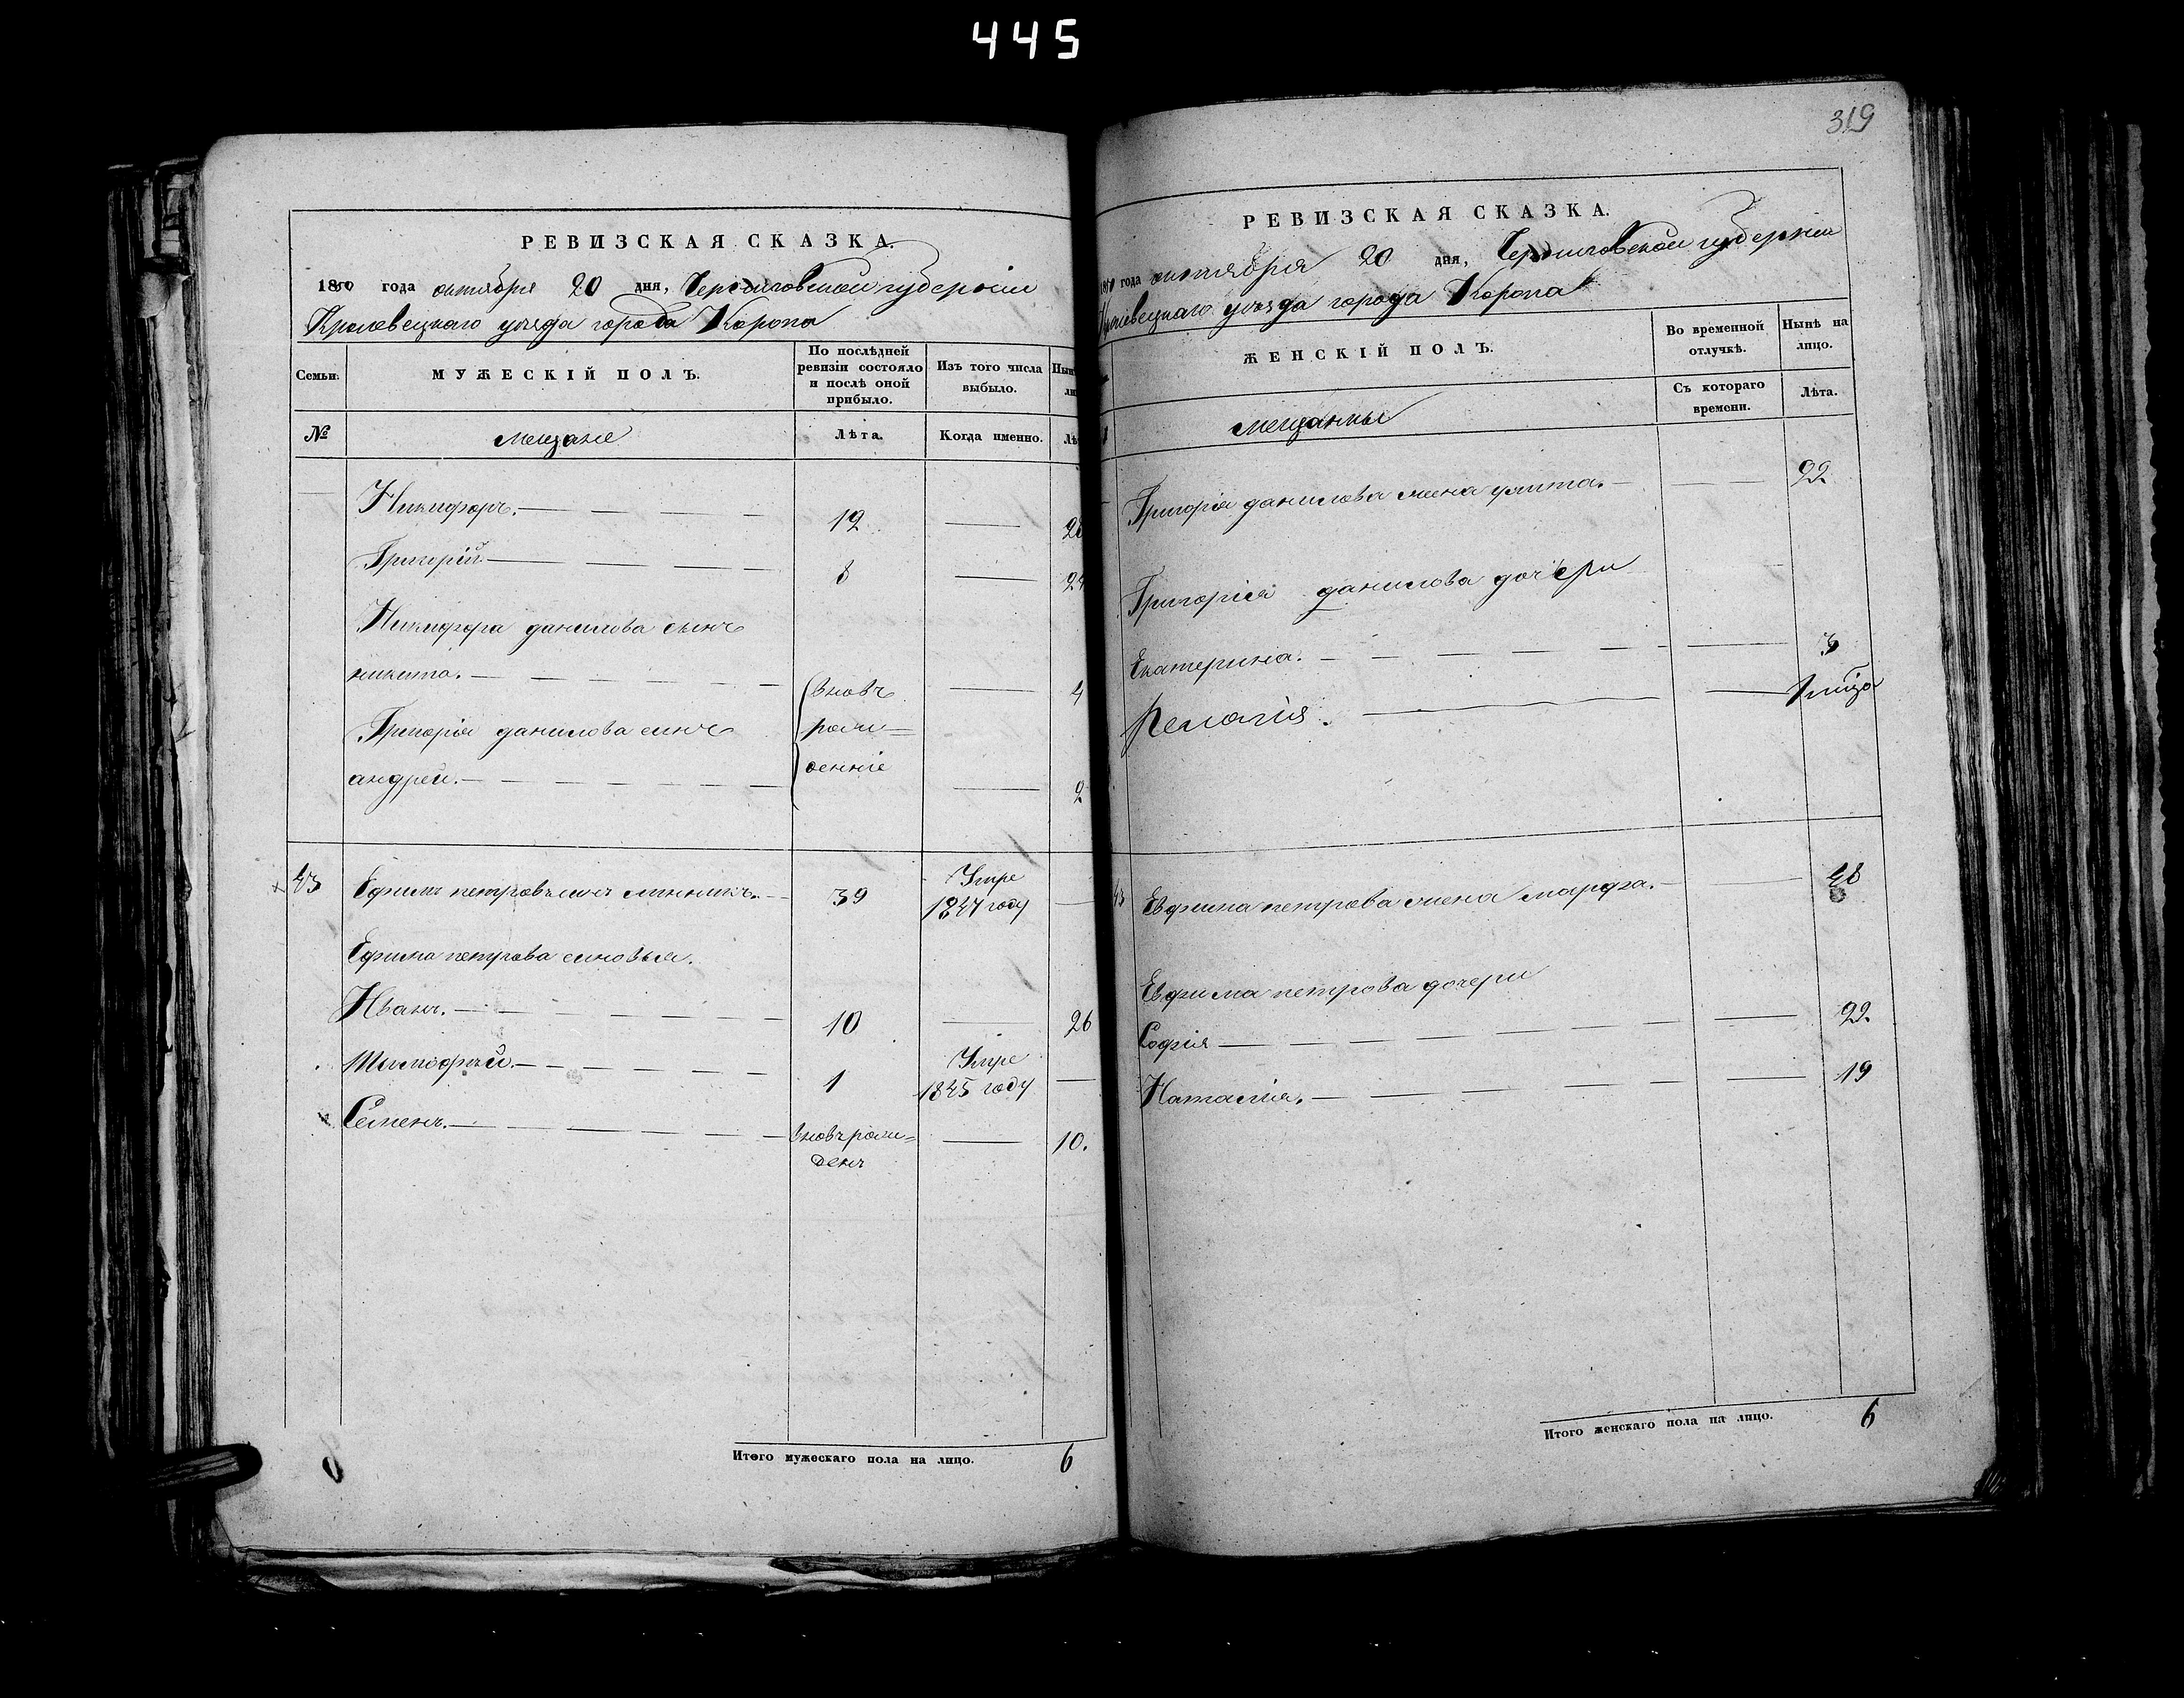 445
РЕВИЗСКАЯ СКАЗКА.
1850 года октября 20 дня, Черниговской губерніи
Кролевецкаго уѣзда города Коропа
Семьи.
МУЖЕСКІЙ ПОЛЪ.
По послѣдней ревизіи состояло и послѣ оной прибыло.
Изъ того числа выбыло.
№
мещане
Лѣта.
Когда именно.
Никифоръ. 12
Григорій 8
Никифора данилова сынъ
никита. 4
Григорія данилова синъ
андрей. 2
вновъ
рож
денніе
43 Ефимъ петровъ синъ 39 Умре 1847 году
Ефима петрова синовья.
Иванъ. 10 26
Тимофѣй. 1 Умре 1845 году
Семенъ. вновъ рож= денъ 10.
Итого мужескаго пола на лицо. 6
319
РЕВИЗСКАЯ СКАЗКА.
1850 года октября 20 дня, Черниговской губерніи
Кролевецкаго уѣзда города Коропа
ЖЕНСКІЙ ПОЛЪ.
Во временной отлучкѣ.
Нынѣ на лицо.
Съ котораго времени.
Лѣта.
мещанки
Григорія данилова жена улита. 22
Григорія данилова дочери
Екатерина. 3
Пелагія.
43 Евфима петрова жена марфа. 48
Евфима петрова дочери
Софія 22.
Наталія. 19
Итого женскаго пола на лицо. 6